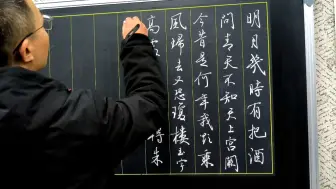 明月幾時有把酒
問青天不知天上宮闕
今昔是何年我欲乘
風歸去又恐瓊樓玉宇
高